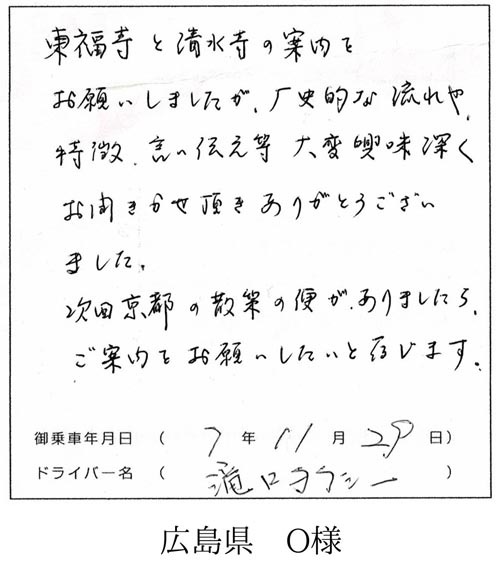 東福寺と清水寺の案内を
お願いしましたが、厂史的な流れや、
特徴、言い伝え等 大変興味深く
お聞きかせ頂きありがとうござい
ました。
次回京都の散策の便が、ありましたら、
ご案内をお願いしたいと存じます。
御乗車年月日 ( 7 年 11 月 29 日)
ドライバー名 ( 滝口タクシー )
広島県 O様